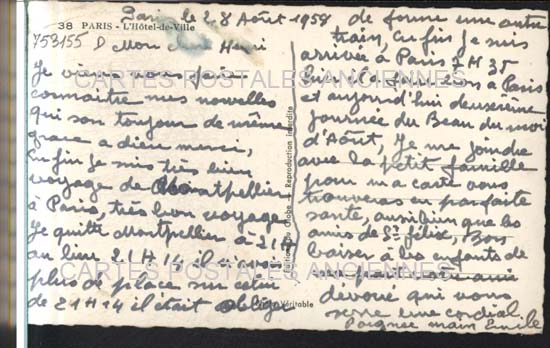 Paris le 28 Août 1958
38 PARIS - L'Hôtel-de-Ville
753155 D Mon Henri
Je viens vous faire
connaitre mes nouvelles
qui son toujour de même
grace a dieu merci,
Enfin je suis très bien
voyage de Montpellier
à Paris, très bon voyage
Je quitte Montpellier à 21H
au lieu 21H14 il avai
plus de place sur celui
de 21H14 il était obliger
de forme une autre
train, Enfin je suis
arrivée à Paris 7H35
a Paris
et aujourd'hui deuxième
journée du Beau du moi
d'Août, Je me joindre
avec la petit famille
pour ma carte vous
trouveras en parfaite
santé, aussi bien que les
amis de St félix, Bons
baiser à les enfants de
amie
devoue qui vous
serre une cordial
Poignee main Emile
CARTES POSTALES ANCIENNES
CARTES POSTALES ANCIENNES
Globe - Reproduction interdite
Véritable